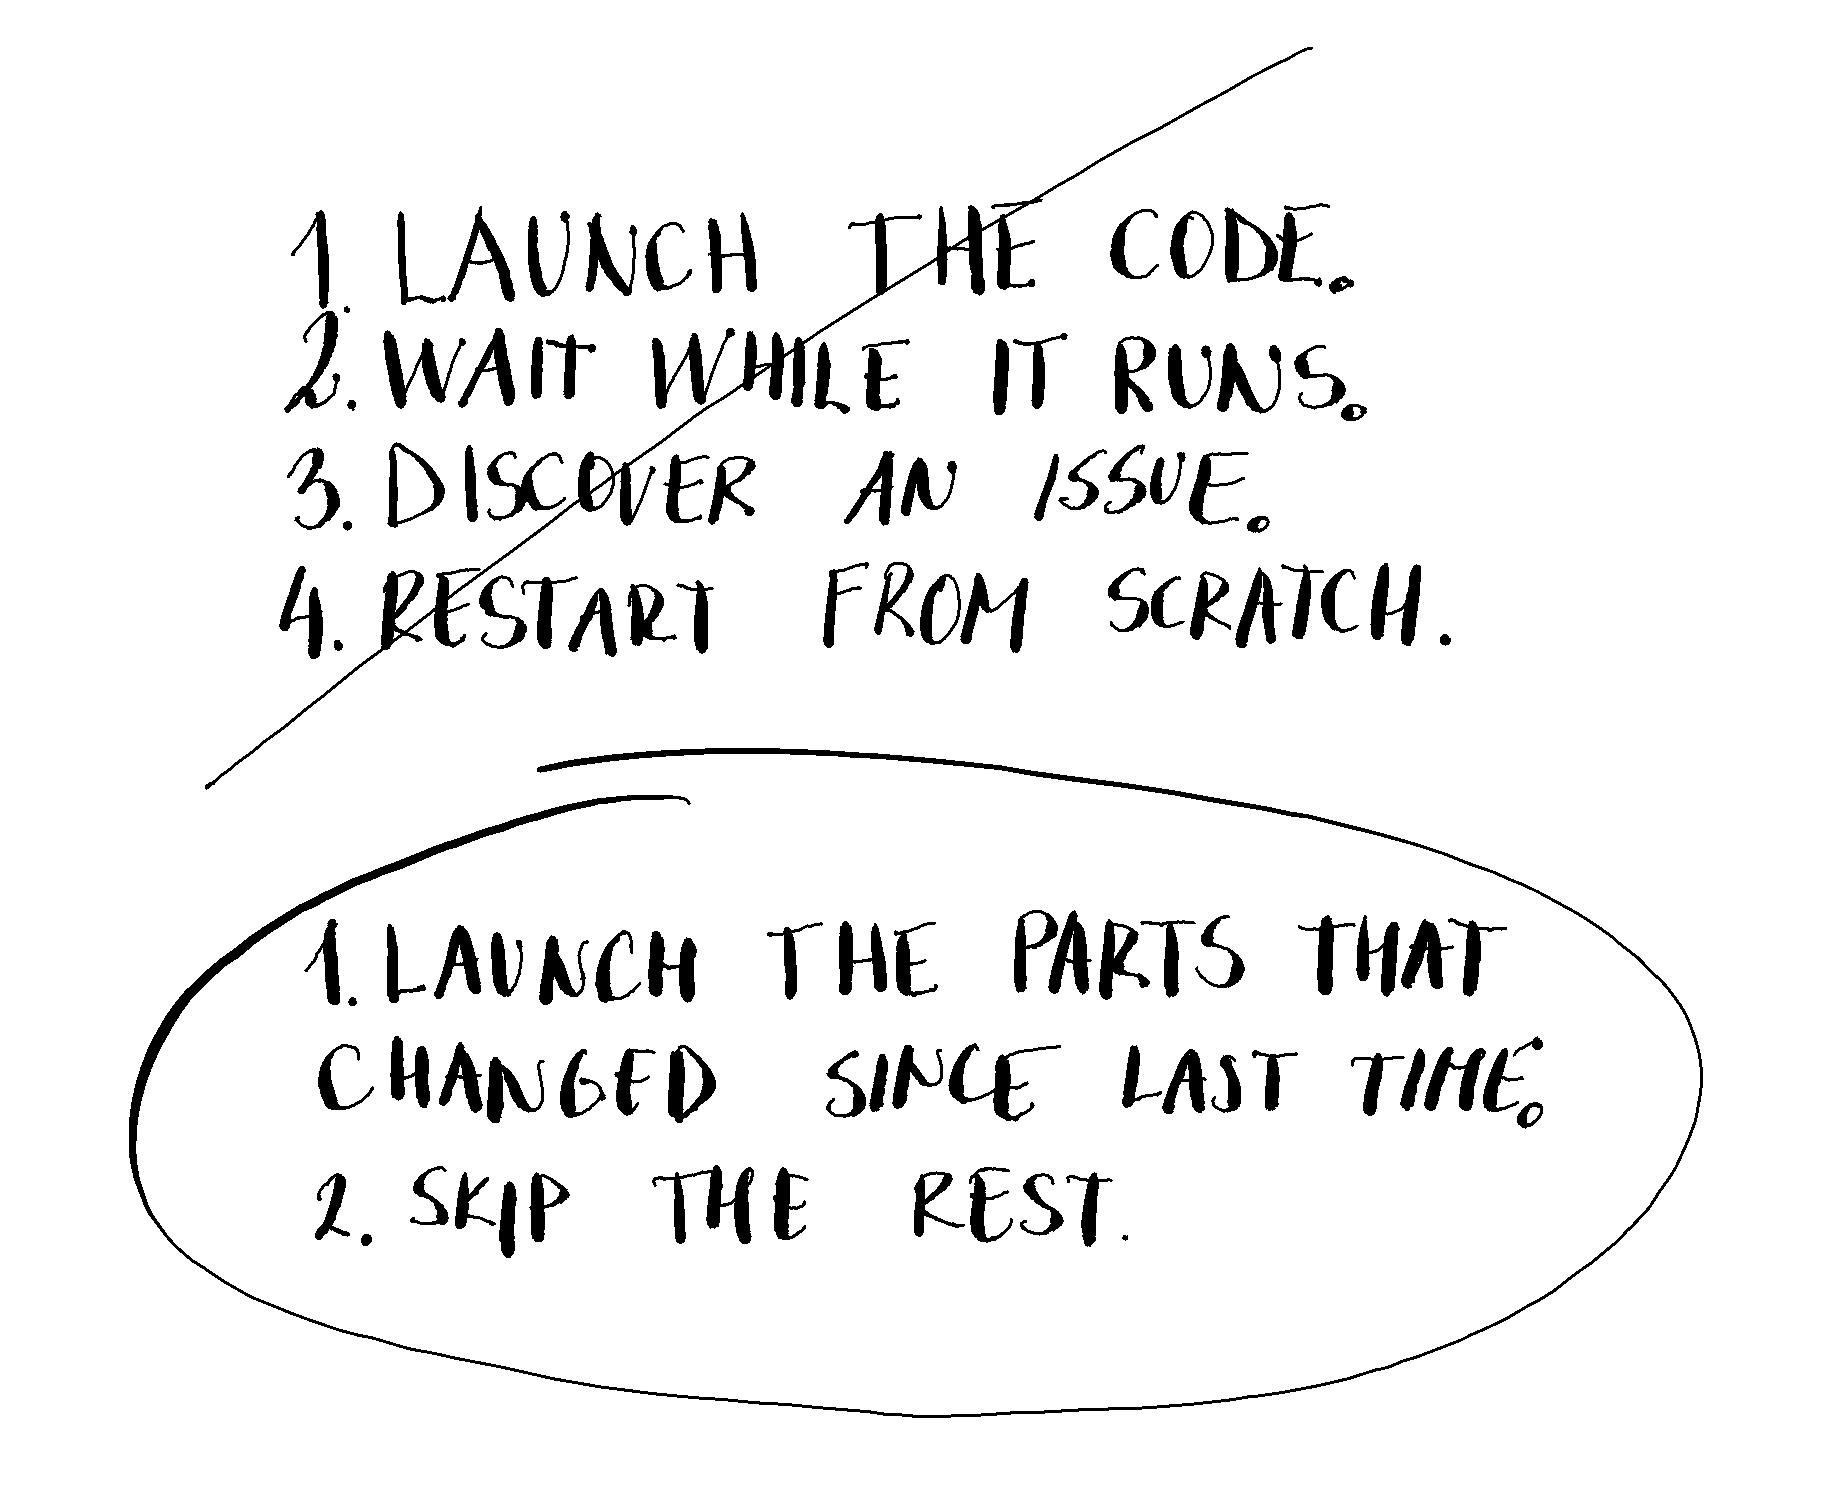 1. LAUNCH THE CODE.
2. WAIT WHILE IT RUNS.
3. DISCOVER AN ISSUE.
4. RESTART FROM SCRATCH.
1. LAUNCH THE PARTS THAT
CHANGED SINCE LAST TIME.
2. SKIP THE REST.